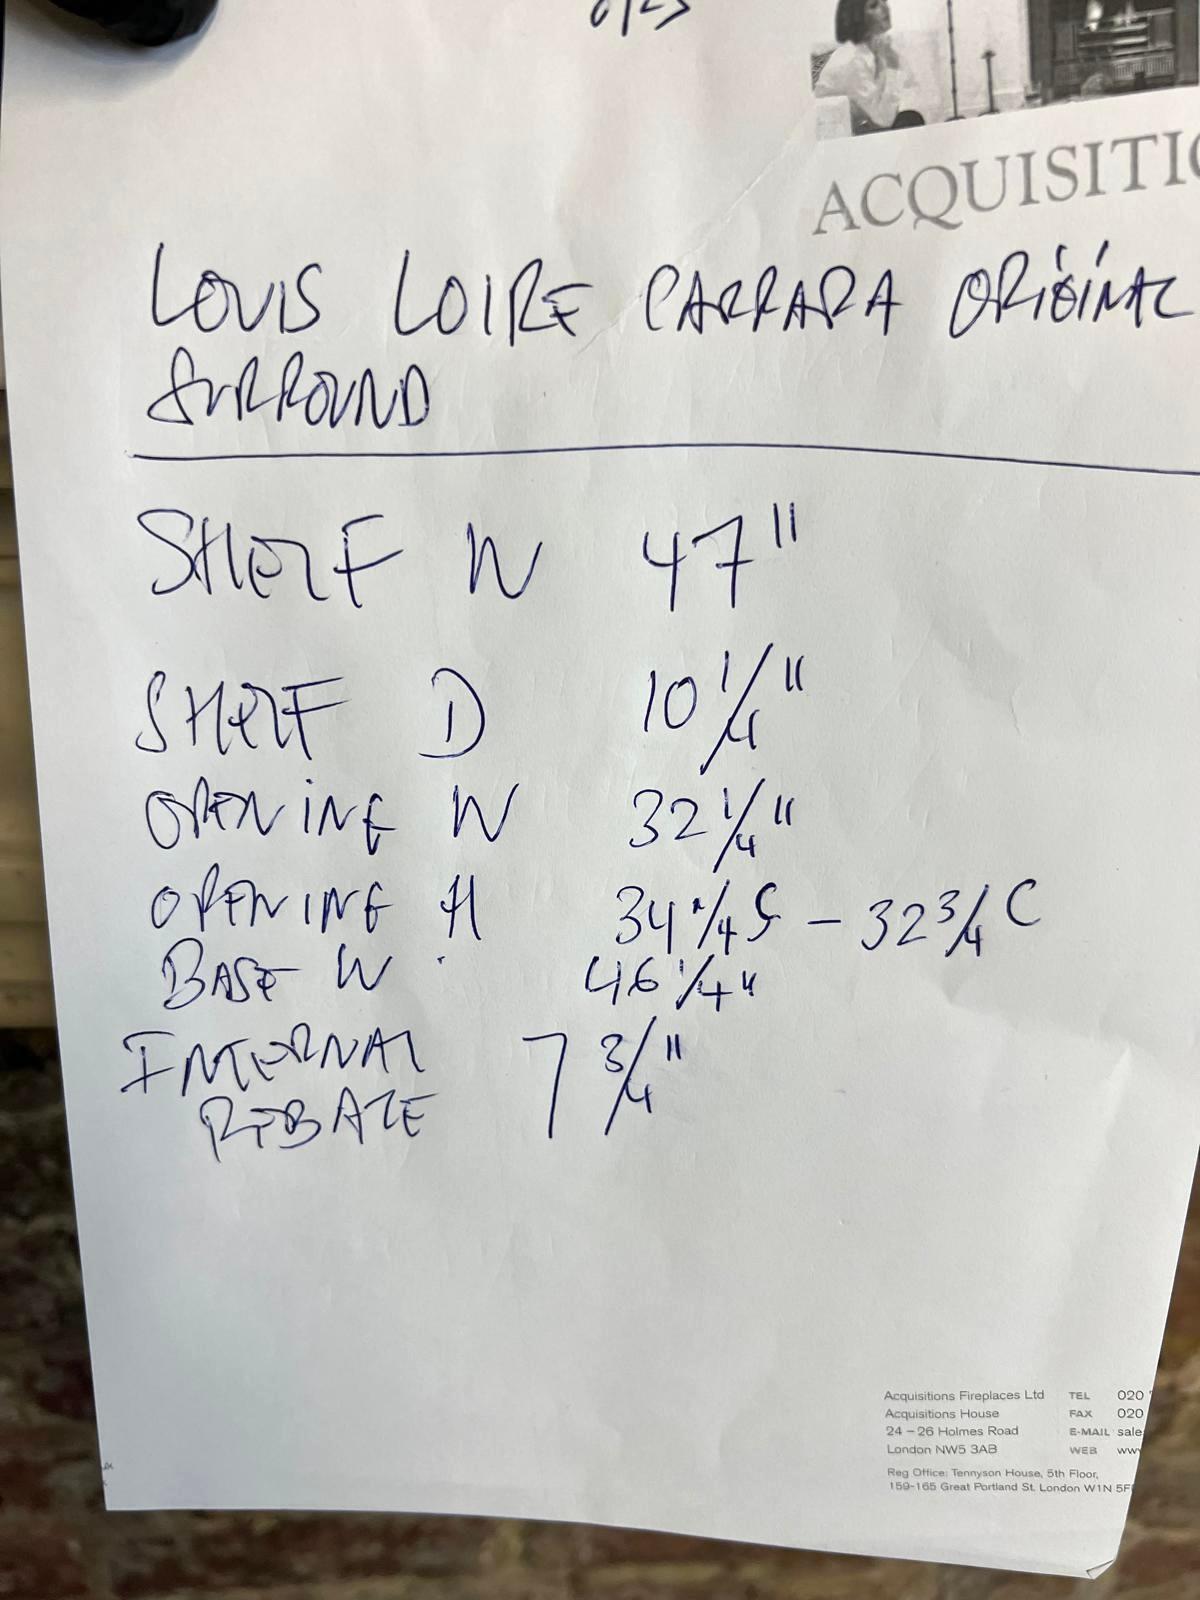 ACQUISITIO
LOUIS LOIRE CARRARA ORIGINAL
SURROUND
SHELF W 47"
SHELF D 10 1/4"
OPENING W 32 1/4"
OPENING H 34 1/4 S - 32 3/4 C
BASE W 46 1/4"
INTERNAL 7 3/4"
REBATE
Acquisitions Fireplaces Ltd TEL 020
Acquisitions House FAX 020
24 – 26 Holmes Road E-MAIL sale
London NW5 3AB WEB www
Reg Office: Tennyson House, 5th Floor,
159-165 Great Portland St. London W1N 5F